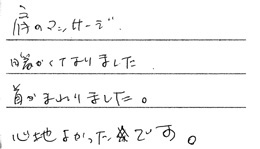 肩のマッサージ.
暖かくてなりました
首がまわりました。
心地よかったです。